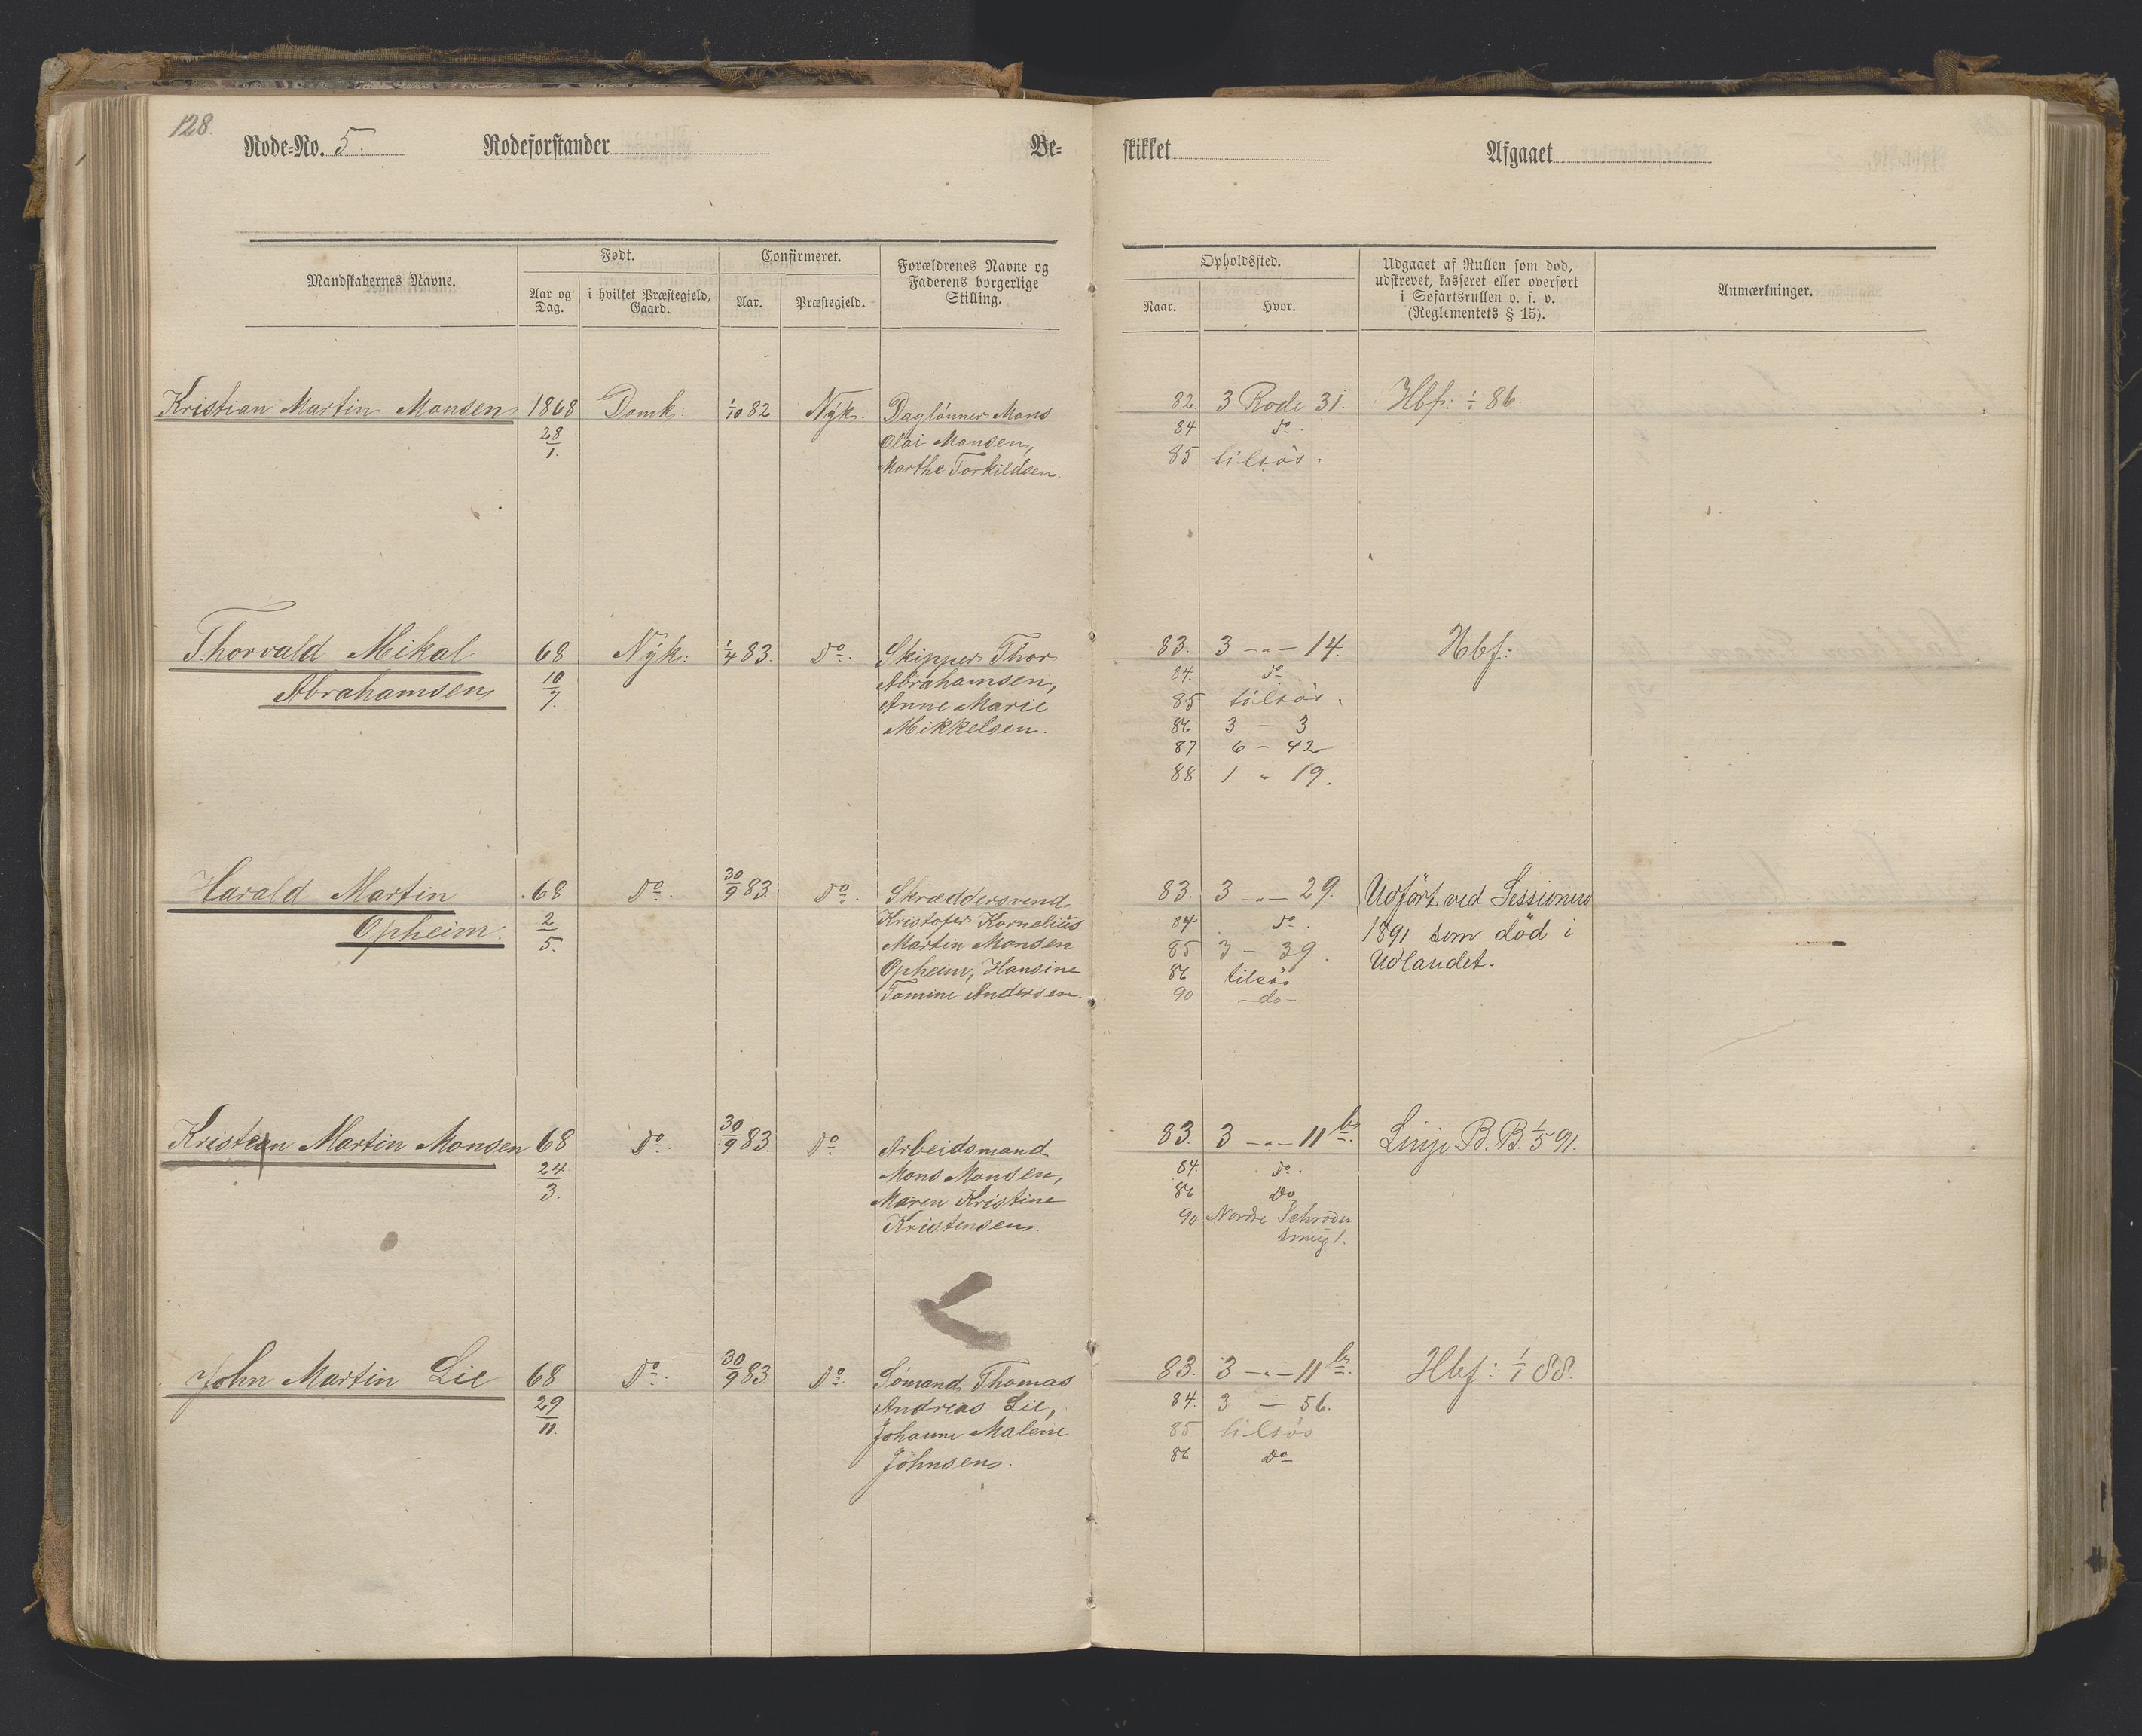 128.
Rode=No. 5. Rodeforstander Be=
skikket Afgaaet
Mandskabernes Navne.
Født.
Aar og Dag.
i hvilket Præstegjeld, Gaard.
Confirmeret.
Aar.
Præstegjeld.
Forældrenes Navne og
Faderens borgerlige
Stilling.
Opholdssted.
Naar.
Hvor.
Udgaaet af Rullen som død,
udskrevet, kasseret eller overført
i Søfartsrullen o. s. v.
(Reglementets § 15).
Anmærkninger.
Kristian Martin Monsen 1868 Domk: 1/10 82. Nyk. Daglönner Mons
28/1.
Olai Monsen,
Marthe Torkildsen.
82. 3 Rode 31. Hbf: 1/1 86.
84 do.
85 tilsös.
Thorvald Mikal 68 Nyk: 1/4 83. Do. Skipper Thor
Abrahamsen 10/7. Abrahamsen,
Anne Marie
Mikkelsen.
83. 3 -"- 14. Hbf:
84. do
85 tilsös.
86 3 - 3
87 6 - 42
88 1 " 19.
Harald Martin 68 Do. 30/9 83. Do. Skræddersvend
Opheim. 2/5. Kristofer Kornelius
Martin Monsen
Opheim, Hansine
Tomine Andersen.
83. 3 -"- 29. Udfört ved Sessionen
84 do. 1891 som död i
85 3 - 39. Udlandet.
86 tilsös
90 -do-
Kristian Martin Monsen 68 Do. 30/9 83. Do. Arbeidsmand
24/3. Mons Monsen,
Maren Kristine
Kristensen.
83. 3 -"- 11 b. Linje B. B. 1/5 91.
84. do.
86 Do
90 Nordre Schröder
smug 1.
John Martin Lie 68 Do. 30/9 83. Do. Sömand Thomas
29/11. Andreas Lie,
Johanne Malene
Johnsen.
83. 3 -"- 11 b. Hbf: 1/1 88.
84. 3 - 56.
85 tilsös
86 Do